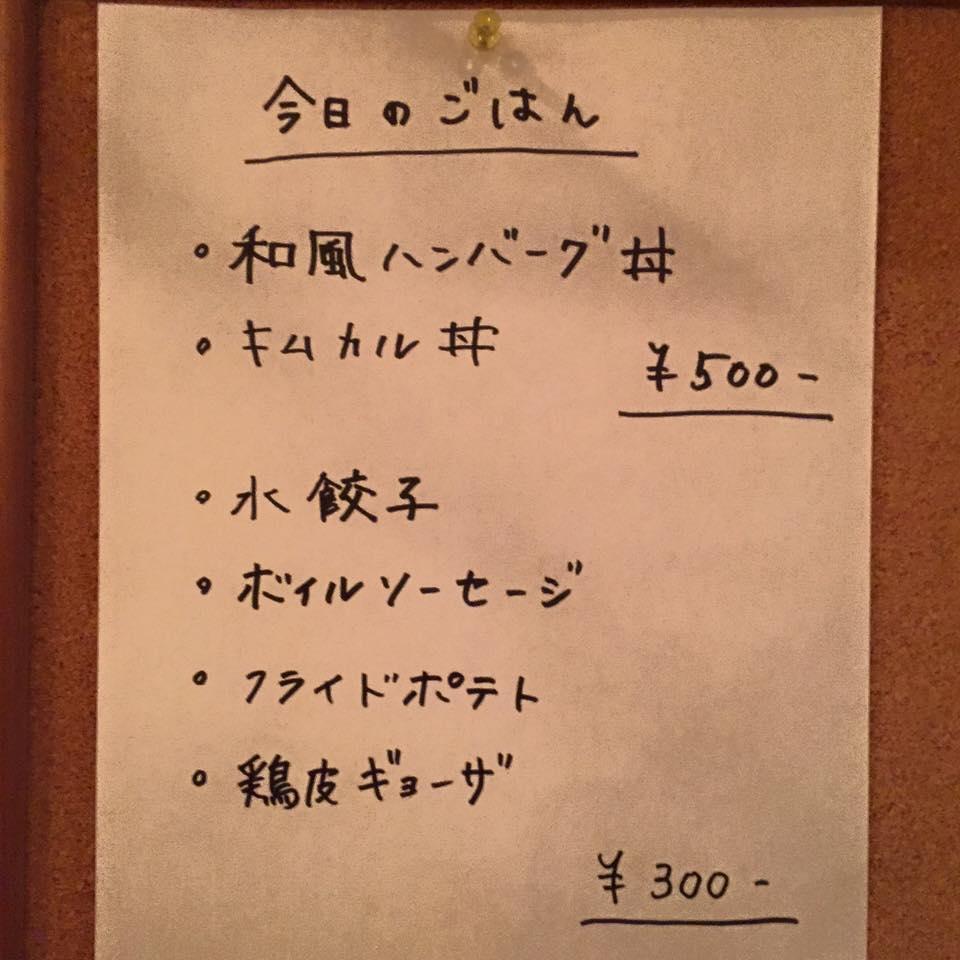 今日のごはん
。和風ハンバーグ丼
。キムカル丼
¥500-
。水餃子
。ボイルソーセージ
。フライドポテト
。鶏皮ギョーザ
¥300-